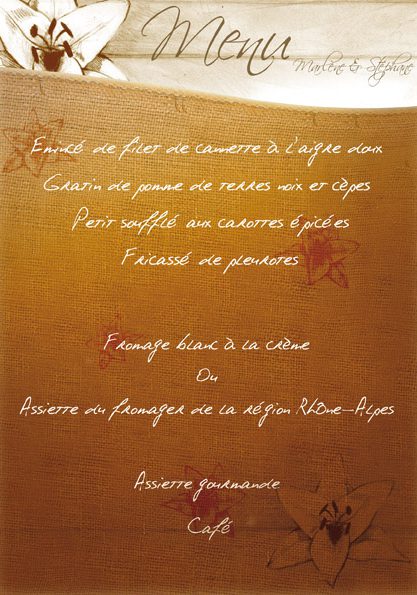 Menu
Marlène & Stéphane
Emincé de filet de canette à l'aigre doux
Gratin de pomme de terres noix et cèpes
Petit soufflé aux carottes épicées
Fricassé de pleurotes
Fromage blanc à la crème
Ou
Assiette du fromager de la région Rhône-Alpes
Assiette gourmande
Café